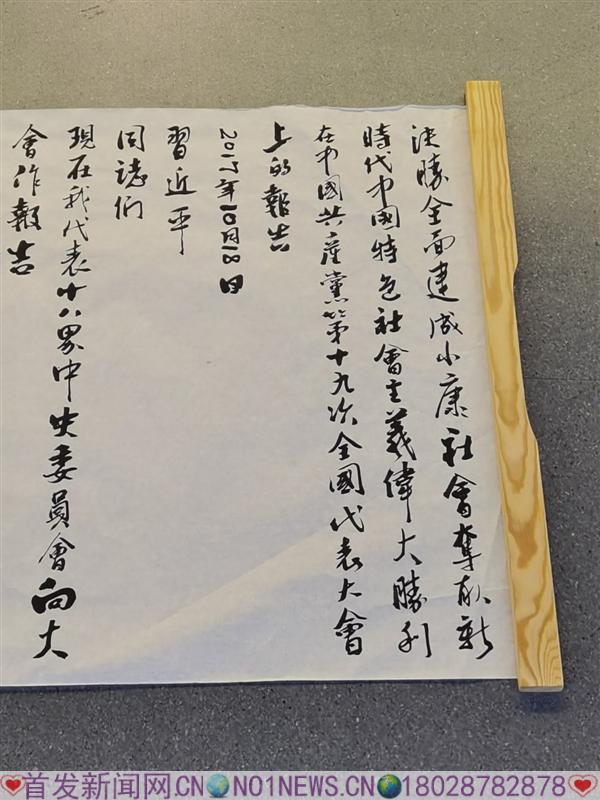 決勝全面建成小康社會奪取新
時代中國特色社會主義偉大勝利
在中國共產黨第十九次全國代表大會
上的報告
2017年10月18日
習近平
同誌们
現在我代表十八界中央委員會向大
會作報告
首发新闻网.CN NO1NEWS.CN 18028782878